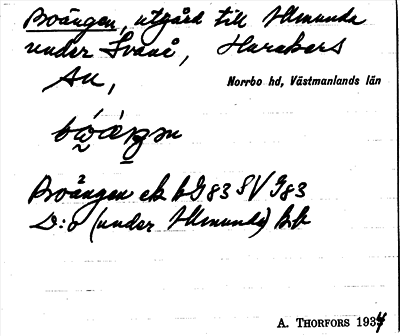 Broängen, utgård till Ulmunda
under Svanå, Harakers
sn,
Norrbo hd, Västmanlands län
Broängen ek bG83 SV G83
D:o (under Ulmunda) hk
A. THORFORS 1934